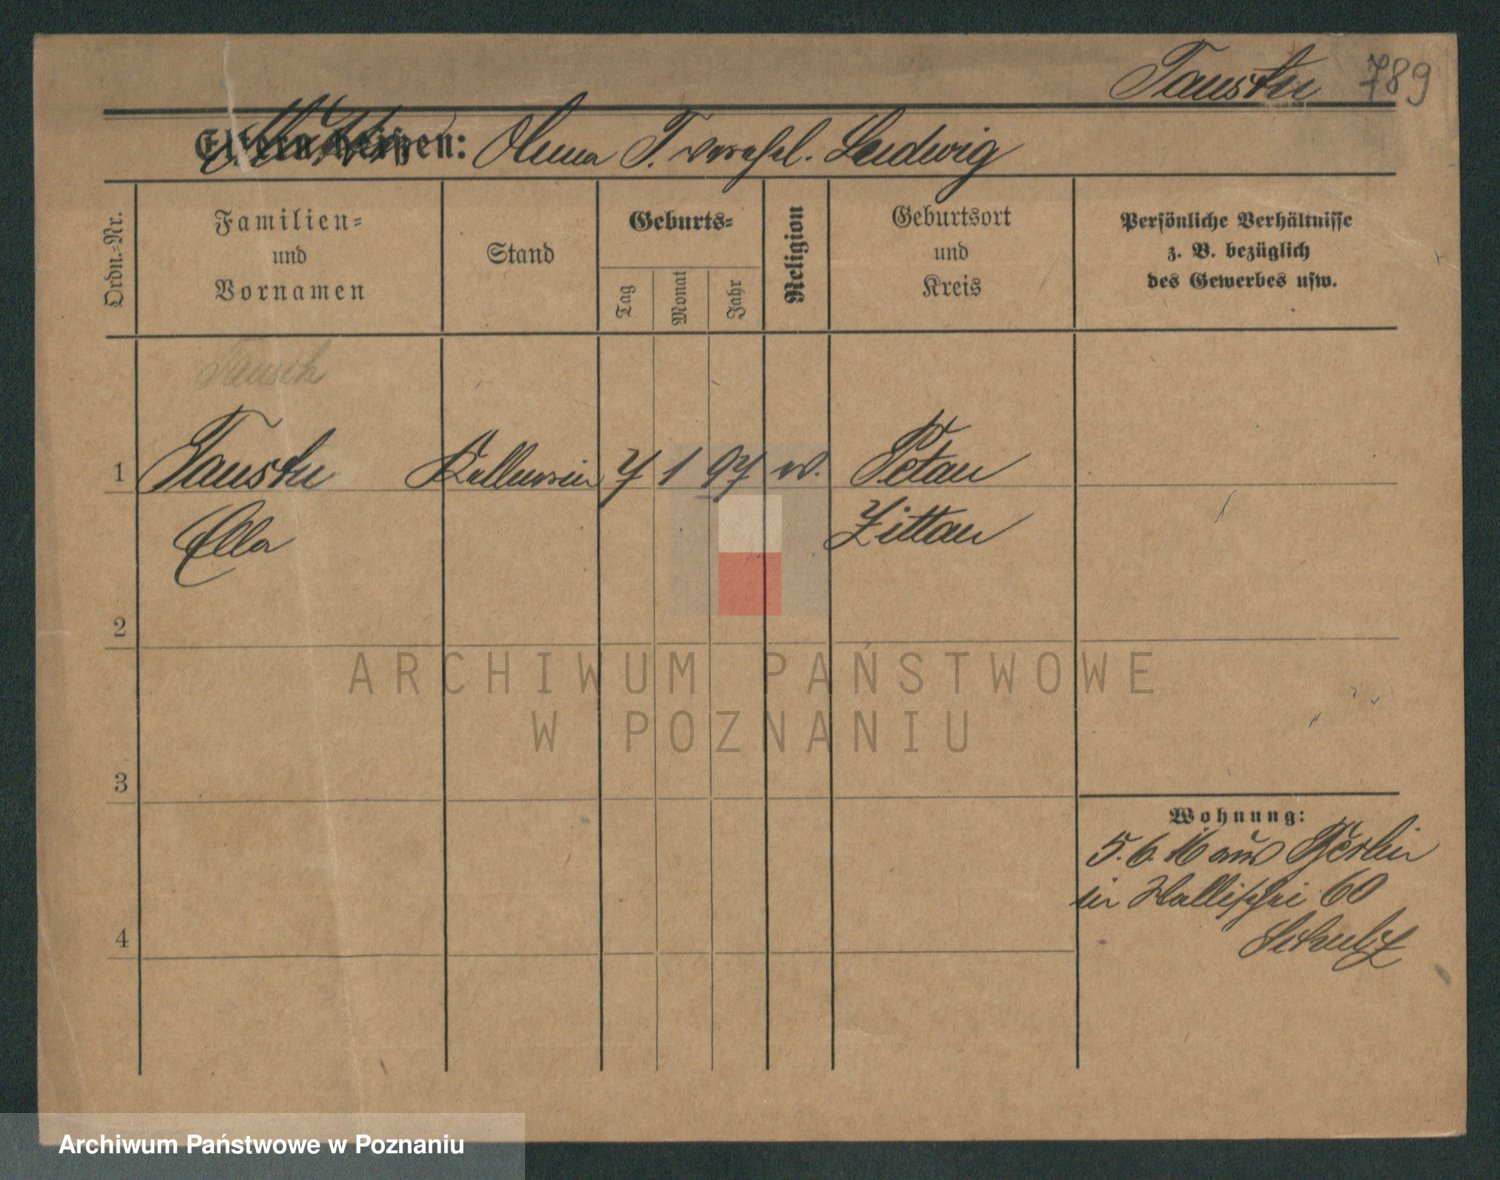 Tauske 789
Eltern heißen: Anna T. verehel. Ludwig
Ordn.-Nr.
Familien-
und
Vornamen
Stand
Geburts-
Tag
Monat
Jahr
Religion
Geburtsort
und
Kreis
Persönliche Verhältnisse
z. B. bezüglich
des Gewerbes usw.
1 Tauske Kellnerin 7 1 97 ev. Petau
Ella Zittau
2
3
4
Wohnung:
5.6.16 aus Berlin
in Hallische 60
Schulz
ARCHIWUM PAŃSTWOWE
W POZNANIU
Archiwum Państwowe w Poznaniu